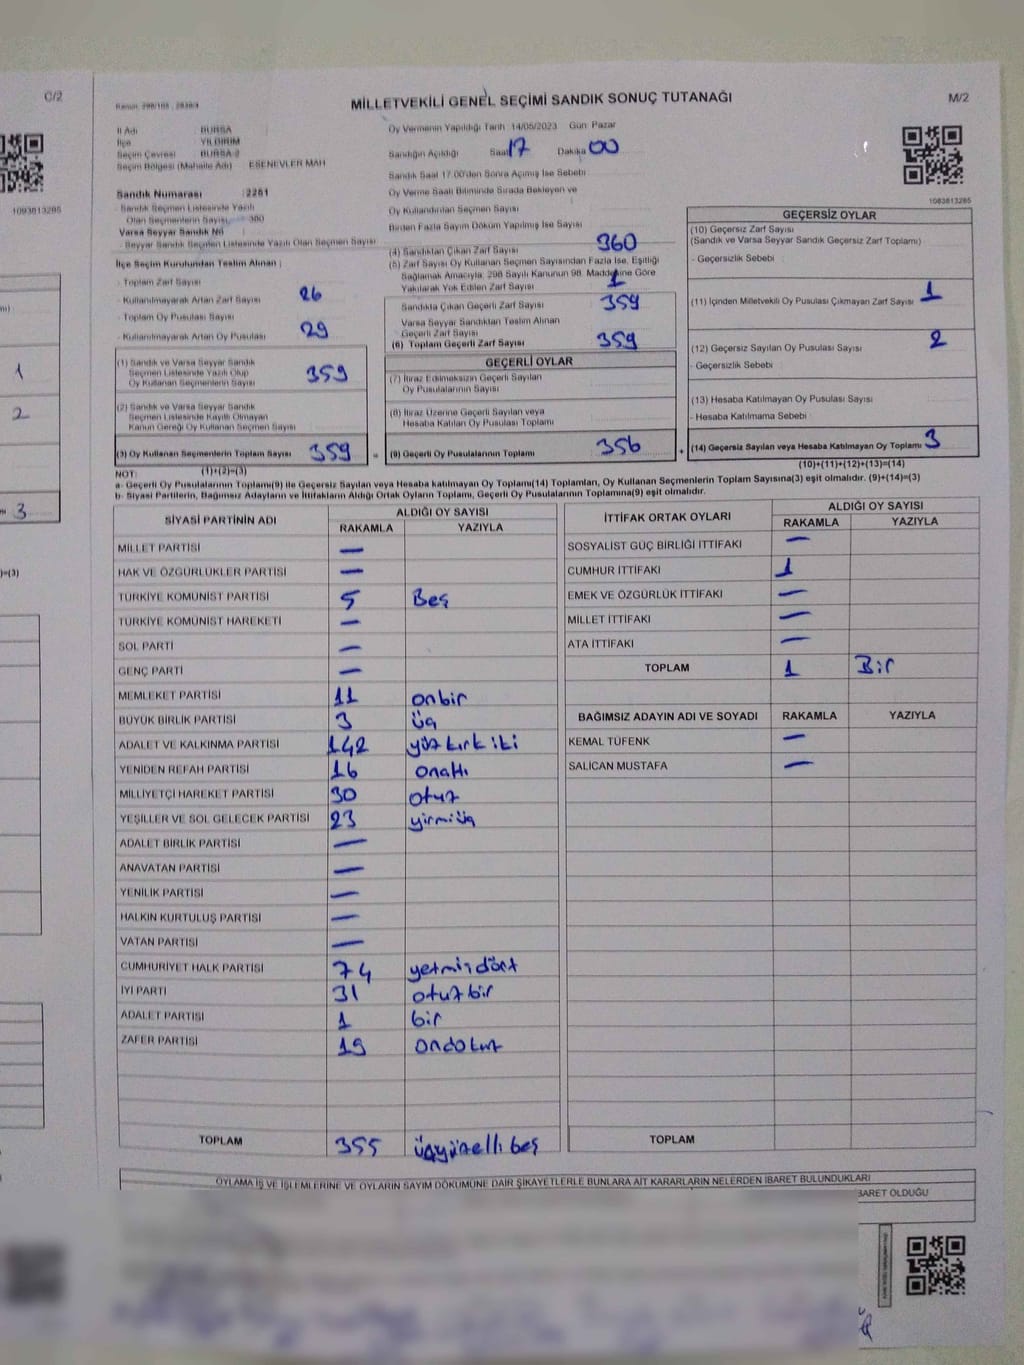 C/2
1093813285
1
2
3
)=(3)
MİLLETVEKİLİ GENEL SEÇİMİ SANDIK SONUÇ TUTANAĞI
M/2
İl Adı BURSA
İlçe YILDIRIM
Seçim Çevresi BURSA 2
Seçim Bölgesi (Mahalle Adı) ESENEVLER MAH
Sandık Numarası : 2261
Sandık Seçmen Listesinde Yazılı
Olan Seçmenlerin Sayısı 360
Varsa Seyyar Sandık No
Seyyar Sandık Seçmen Listesinde Yazılı Olan Seçmen Sayısı
İlçe Seçim Kurulundan Teslim Alınan ;
Toplam Zarf Sayısı
Kullanılmayarak Artan Zarf Sayısı 26
Toplam Oy Pusulası
Kullanılmayarak Artan Oy Pusulası 29
(1) Sandık ve Varsa Seyyar Sandık
Seçmen Listesinde Yazılı Olup
Oy Kullanan Seçmenlerin Sayısı 359
(2) Sandık ve Varsa Seyyar Sandık
Seçmen Listesinde Kayıtlı Olmayan
Kanun Gereği Oy Kullanan Seçmen Sayısı
(3) Oy Kullanan Seçmenlerin Toplam Sayısı 359
(1)+(2)=(3)
Oy Vermenin Yapıldığı Tarih 14/05/2023 Gün Pazar
Sandığın Açıldığı Saat 17 Dakika 00
Sandık Saat 17:00'den Sonra Açılmış İse Sebebi
Oy Verme Saati Bitiminde Sırada Bekleyen ve
Oy Kullandırılan Seçmen Sayısı
Birden Fazla Sayım Döküm Yapılmış İse Sayısı
(4) Sandıktan Çıkan Zarf Sayısı 360
(5) Zarf Sayısı Oy Kullanan Seçmen Sayısından Fazla İse, Eşitliği
Sağlamak Amacıyla, 298 Sayılı Kanunun 98. Maddesine Göre
Yakılarak Yok Edilen Zarf Sayısı 1
Sandıkta Çıkan Geçerli Zarf Sayısı 359
Varsa Seyyar Sandıktan Teslim Alınan
Geçerli Zarf Sayısı
(6) Toplam Geçerli Zarf Sayısı 359
GEÇERLİ OYLAR
(7) İtiraz Edilmeksizin Geçerli Sayılan
Oy Pusulalarının Sayısı
(8) İtiraz Üzerine Geçerli Sayılan veya
Hesaba Katılan Oy Pusulası Toplamı
(9) Geçerli Oy Pusulalarının Toplamı 356
1083813285
GEÇERSİZ OYLAR
(10) Geçersiz Zarf Sayısı
(Sandık ve Varsa Seyyar Sandık Geçersiz Zarf Toplamı)
- Geçersizlik Sebebi :
(11) İçinden Milletvekili Oy Pusulası Çıkmayan Zarf Sayısı 1
(12) Geçersiz Sayılan Oy Pusulası Sayısı 2
- Geçersizlik Sebebi :
(13) Hesaba Katılmayan Oy Pusulası Sayısı
- Hesaba Katılmama Sebebi :
(14) Geçersiz Sayılan veya Hesaba Katılmayan Oy Toplamı 3
(10)+(11)+(12)+(13)=(14)
NOT:
a- Geçerli Oy Pusulalarının Toplamı(9) ile Geçersiz Sayılan veya Hesaba katılmayan Oy Toplamı(14) Toplamları, Oy Kullanan Seçmenlerin Toplam Sayısına(3) eşit olmalıdır. (9)+(14)=(3)
b- Siyasi Partilerin, Bağımsız Adayların ve İttifakların Aldığı Ortak Oyların Toplamı, Geçerli Oy Pusulalarının Toplamına(9) eşit olmalıdır.
SİYASİ PARTİNİN ADI ALDIĞI OY SAYISI
RAKAMLA YAZIYLA
MİLLET PARTİSİ —
HAK VE ÖZGÜRLÜKLER PARTİSİ —
TÜRKİYE KOMÜNİST PARTİSİ 5 Beş
TÜRKİYE KOMÜNİST HAREKETİ —
SOL PARTİ —
GENÇ PARTİ —
MEMLEKET PARTİSİ 11 onbir
BÜYÜK BİRLİK PARTİSİ 3 üç
ADALET VE KALKINMA PARTİSİ 142 yüz kırk iki
YENİDEN REFAH PARTİSİ 16 onaltı
MİLLİYETÇİ HAREKET PARTİSİ 30 otuz
YEŞİLLER VE SOL GELECEK PARTİSİ 23 yirmiüç
ADALET BİRLİK PARTİSİ —
ANAVATAN PARTİSİ —
YENİLİK PARTİSİ —
HALKIN KURTULUŞ PARTİSİ —
VATAN PARTİSİ —
CUMHURİYET HALK PARTİSİ 74 yetmişdört
İYİ PARTİ 31 otuz bir
ADALET PARTİSİ 1 bir
ZAFER PARTİSİ 19 ondokuz
TOPLAM 355 üçyüzelli beş
İTTİFAK ORTAK OYLARI ALDIĞI OY SAYISI
RAKAMLA YAZIYLA
SOSYALİST GÜÇ BİRLİĞİ İTTİFAKI —
CUMHUR İTTİFAKI 1
EMEK VE ÖZGÜRLÜK İTTİFAKI —
MİLLET İTTİFAKI —
ATA İTTİFAKI —
TOPLAM 1 Bir
BAĞIMSIZ ADAYIN ADI VE SOYADI RAKAMLA YAZIYLA
KEMAL TÜFENK —
SALİCAN MUSTAFA —
TOPLAM
OYLAMA İŞ VE İŞLEMLERİNE VE OYLARIN SAYIM DÖKÜMÜNE DAİR ŞİKAYETLERLE BUNLARA AİT KARARLARIN NELERDEN İBARET BULUNDUKLARI
BARET OLDUĞU